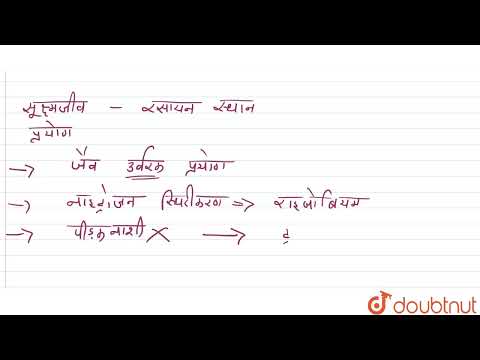 सूक्ष्मजीव - रसायन स्थान
प्रयोग
→ जैव उर्वरक प्रयोग
→ नाइट्रोजन स्थिरीकरण ⇒ राइजोबियम
→ पीड़कनाशी × → ट्र
doubtnut